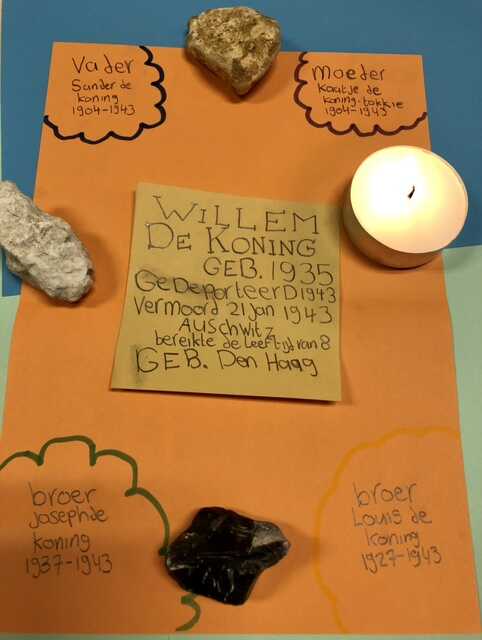 Vader
Sander de
Koning
1904-1943
Moeder
Kaatje de
Koning-tokkie
1904-1943
WILLEM
DE KONING
GEB. 1935
GeDePorteerD 1943
Vermoord 21 Jan 1943
AUSchwitz
bereikte de leeftijd van 8
GEB. Den Haag
broer
Joseph de
Koning
1937-1943
broer
Louis de
Koning
1927-1943